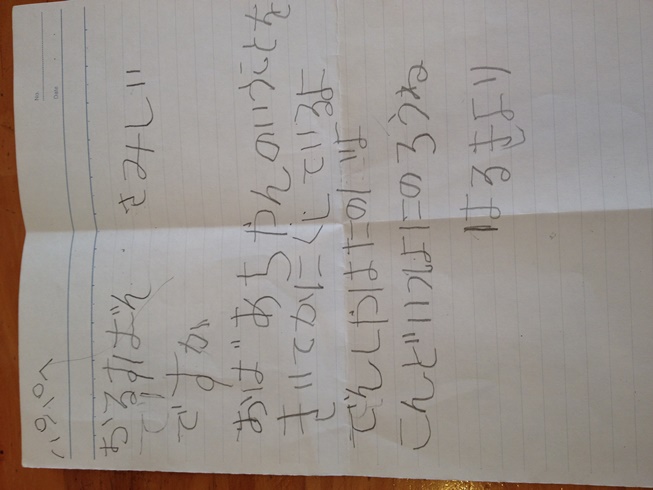 No.
Date
パパへ
おるすばん さみしい
ですか
おばあちゃんのいうことを
きいて しているよ
でんしゃはたのしいよ
こんどいっしょにのろうね
はるきより